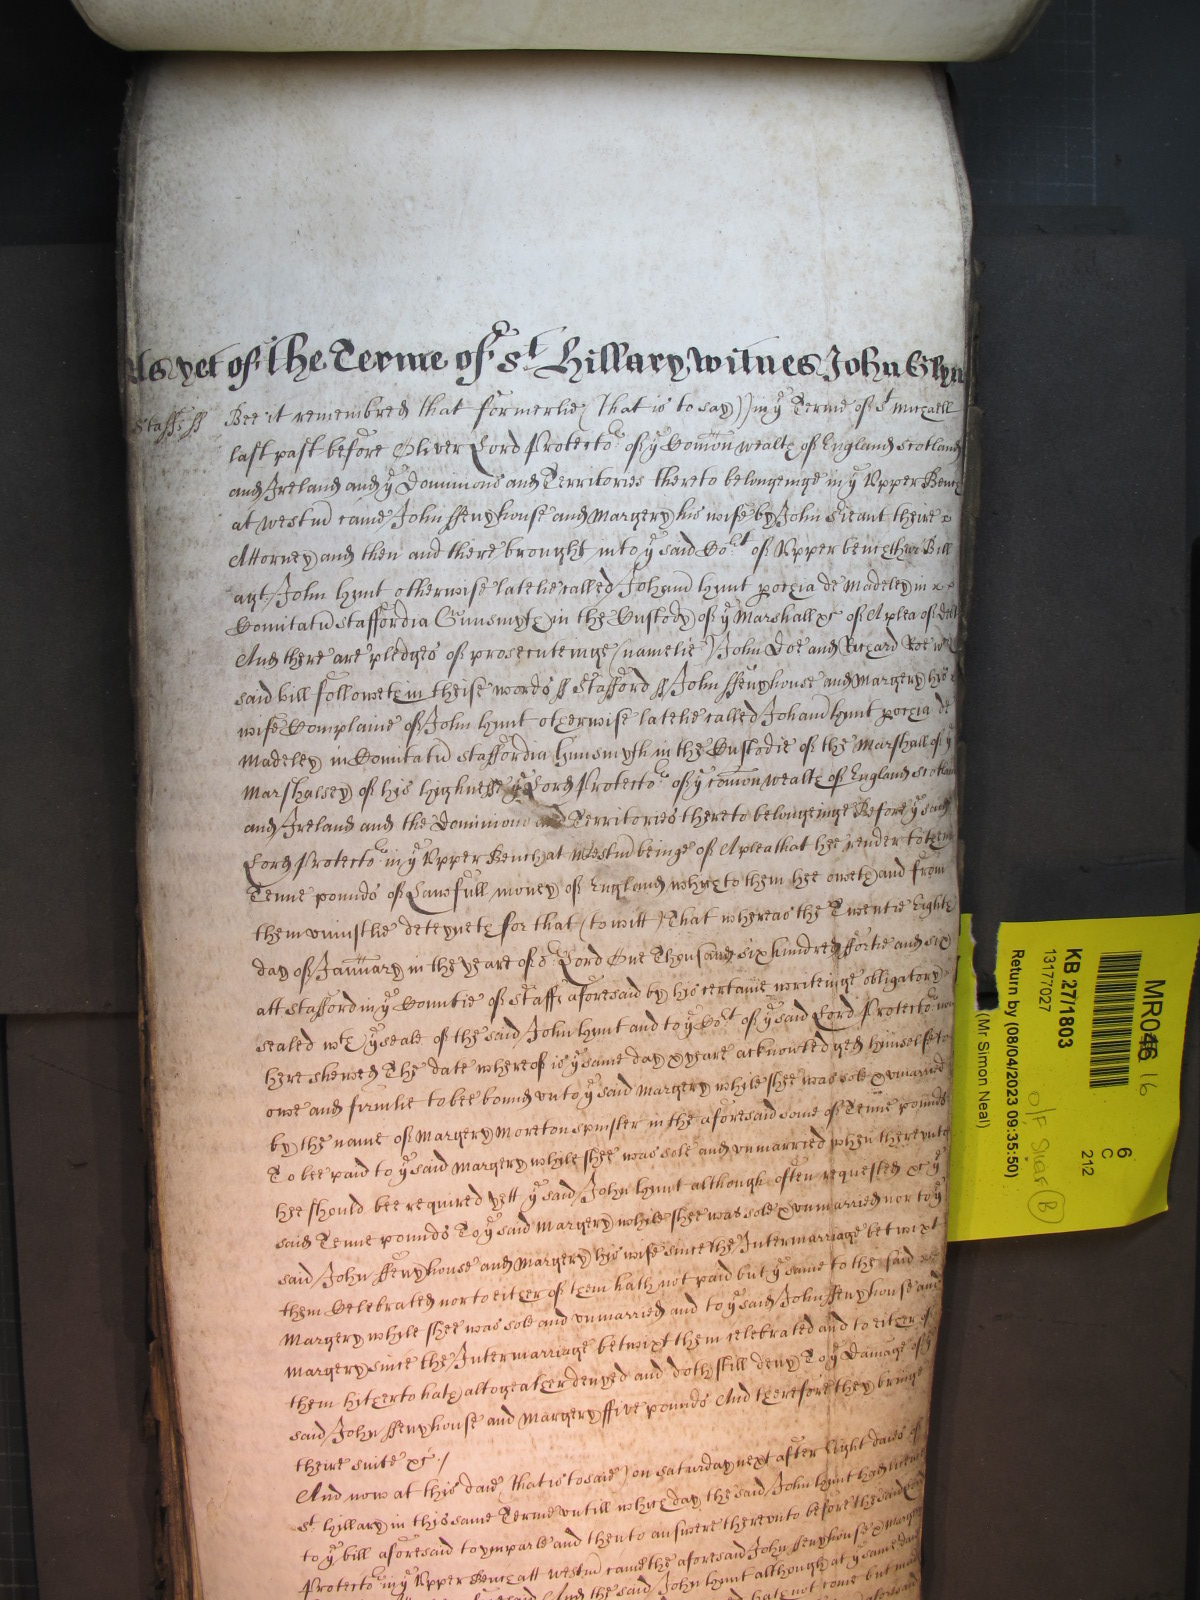 As yet of the Terme of St Hillary witnes John Glyn
Staff ss Bee it remembred that formerlie (that is to say) in ye Terme of St Michaell
last past before Oliver Lord Protector of ye Comonwealth of England Scotland
and Ireland and ye Dominions and Territories thereto belongeinge in ye Upper Bench
at Westm came John ffenyhouse and Margery his wife by John theire
Attorney and then and there brought into ye said Cort of Upper bench their Bill
agt John Hynt otherwise latelie called Johann Hynt pochia de Madeley in
Comitatu Staffordia Gunsmyth in the Custody of ye Marshall &c of A plea of debt
And there are pledges of prosecuteinge (namelie) John Doe and Richard Roe wch
said bill followeth in theise words ss Stafford ss John ffenyhouse and Margery his
wife Complaine of John Hynt otherwise latelie called Johann Hynt pochia de
Madeley in Comitatu Staffordia Gunsmyth in the Custodie of the Marshall of ye
Marshalsey of his highnesse ye Lord Protector of ye comonwealth of England Scotland
and Ireland and the Dominions and Territories thereto belongeinge Before ye said
Lord Protector in ye Upper Bench at Westm beinge of A plea that hee render to them
Tenne pounds of Lawfull money of England which to them hee oweth and from
them uniustlie deteyneth for that (to witt) That whereas the Twentie Eighth
day of January in the yeare of or Lord One Thousand six hundred fortie and six
att Stafford in ye Countie of Staff aforesaid by his certaine writeinge obligatory
sealed wth ye seale of the said John Hynt and to ye Cort of ye said Lord Protector now
here shewed The date whereof is ye same day & yeare acknowledged himselfe to
owe and firmlie to bee bound unto ye said Margery while shee was sole & unmarried
by the name of Margery Moreton Spinster in the aforesaid some of Tenne pounds
To bee paid to ye said Margery while shee was sole and unmarried when thereunto
hee should bee required yett ye said John Hynt although often requested &c ye
said Tenne pounds To ye said Margery while shee was sole & unmarried nor to ye
said John ffenyhouse and Margery his wife since the Intermarriage betwixt
them Celebrated nor to either of them hath not paid but ye same to the said
Margery while shee was sole and unmarried and to ye said John ffenyhouse and
Margery since the Intermarriage betwixt them celebrated and to either of
them hitherto hath altogeather denyed and doth still deny To ye Damage of ye
said John ffenyhouse and Margery ffive pounds And therefore they bringe
theire suite &c /
And now at this daie (that is to saie) on Saturday next after Eight daies of
St Hillary in this same Terme untill which day the said John Hynt had licence
to ye bill aforesaid to imparle and then to answere thereunto before the said Lord
Protector in ye Upper Bench att Westm came the aforesaid John ffenyhouse & Margery
And the said John Hynt although at ye same day
hath not come but
MR046 16
KB 27/1803
13177027
Return by (08/04/2023 09:35:50)
(Mr Simon Neal)
6
C
212
O/F
B